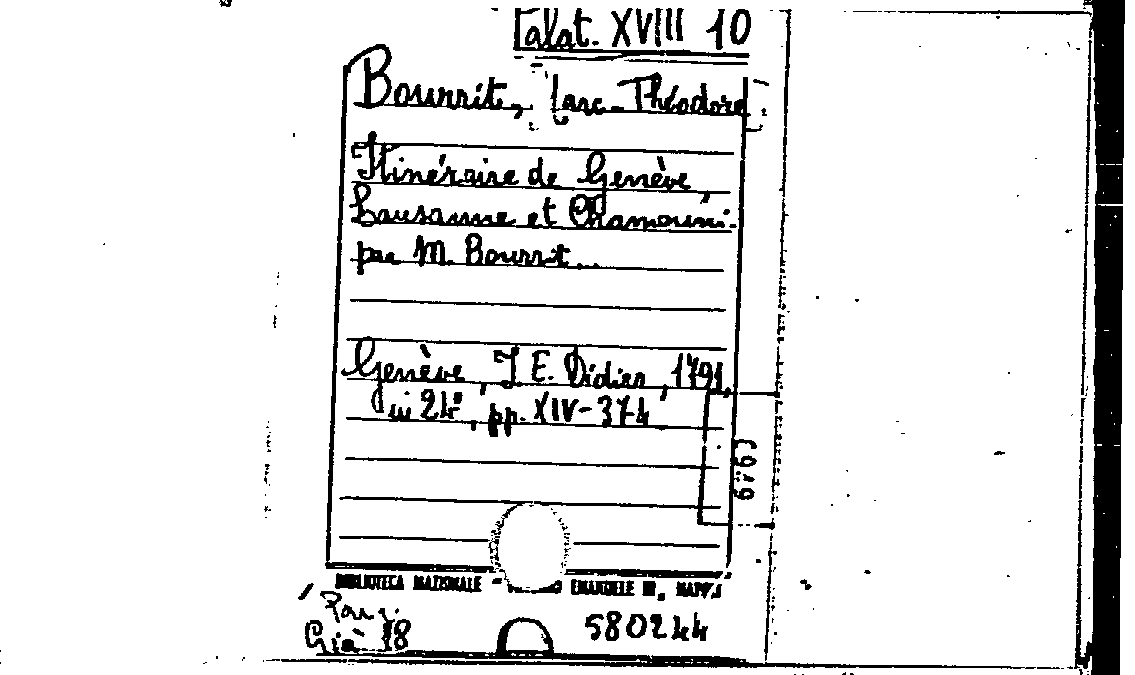 Palat. XVIII 10
Bourrit, Marc-Théodore.
Itinéraire de Genève,
Lausanne et Chamouni.
par M. Bourrit...
Genève, J. E. Didier, 1791,
in 24°, pp. XIV-374
BIBLIOTECA NAZIONALE - EMANUELE III, NAPOLI
Già 18
580244